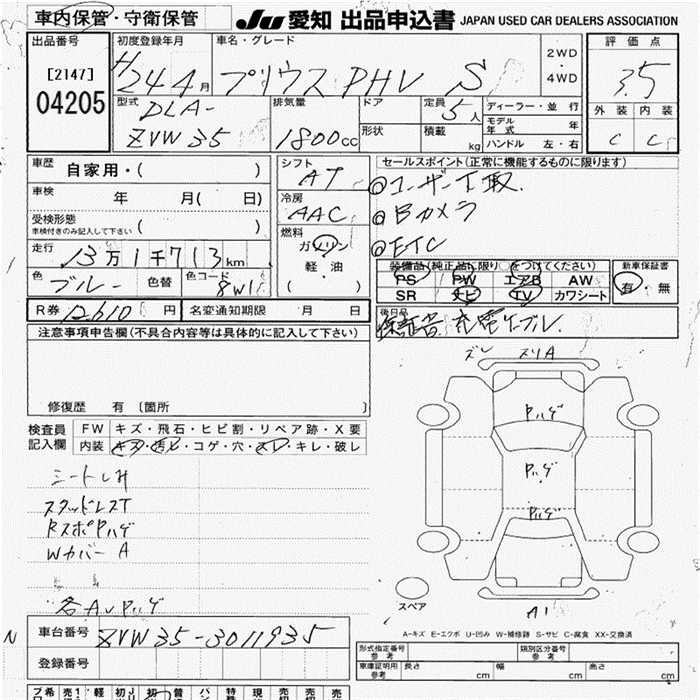 車内保管・守衛保管
JU 愛知 出品申込書 JAPAN USED CAR DEALERS ASSOCIATION
出品番号
[2147]
04205
初度登録年月
H24 4月
車名・グレード
プリウスPHV S
2WD
・
4WD
評価点
3.5
外装 内装
C C
型式
DLA-
ZVW35
排気量
1800cc
ドア
形状
定員
5人
積載
kg
ディーラー・並行
モデル年式 年
ハンドル 左・右
車歴
自家用・( )
車検
年 月( 日)
受検形態
車検付きのみ記入して下さい
( )
走行
13万1千713km
色
ブルー 色替
色コード
8W1
シフト
AT
冷房
AAC
燃料
ガソリン
軽・油
( )
セールスポイント(正常に機能するものに限ります)
◎ユーザー下取.
◎Bカメラ
◎ETC
装備品(純正品に限り○をつけてください)
PS PW エアB AW
SR ナビ TV カワシート
新車保証書
有・無
R券 12610円
名変通知期限 月 日
後日品
保証書 充電ケーブル.
注意事項申告欄(不具合内容等は具体的に記入して下さい)
修復歴 有 〔箇所 〕
検査員
記入欄
FW キズ・飛石・ヒビ割・リペア跡・X要
内装 キズ・汚レ・コゲ・穴・スレ・キレ・破レ
シートレM
スタッドレスT
RスポPハゲ
WカバーA
各AUPハゲ
ズレ スリA
Pハゲ
Pハゲ
Pハゲ
スペア
A1
A-キズ E-エクボ U-凹み W-補修跡 S-サビ C-腐食 XX-交換済
N
車台番号 ZVW35-3011935
登録番号
形式指定番号
参考
類別区分番号
参考
車庫証明用
参考
長さ cm 幅 cm 高さ cm